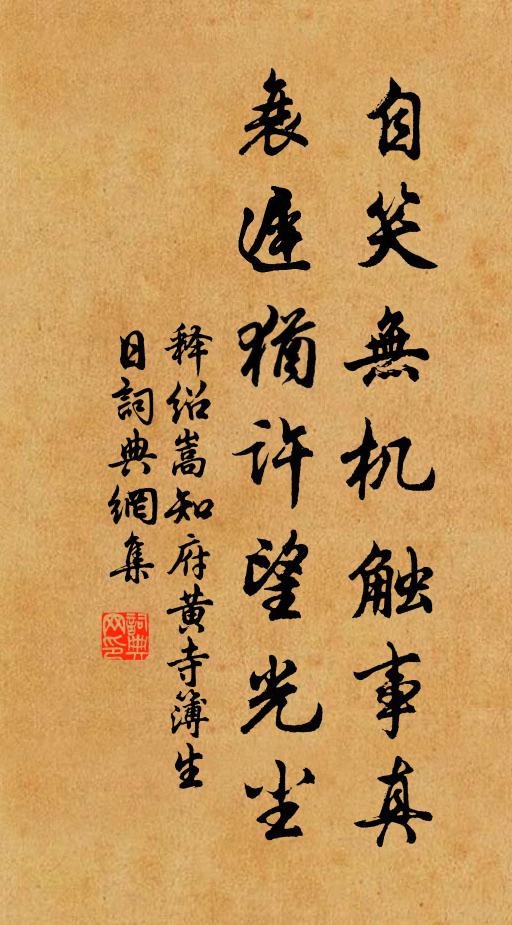 自笑無机触事真
衰遲猶许望光尘
释绍嵩知府黄寺簿生
日詞典網集
詞典网印